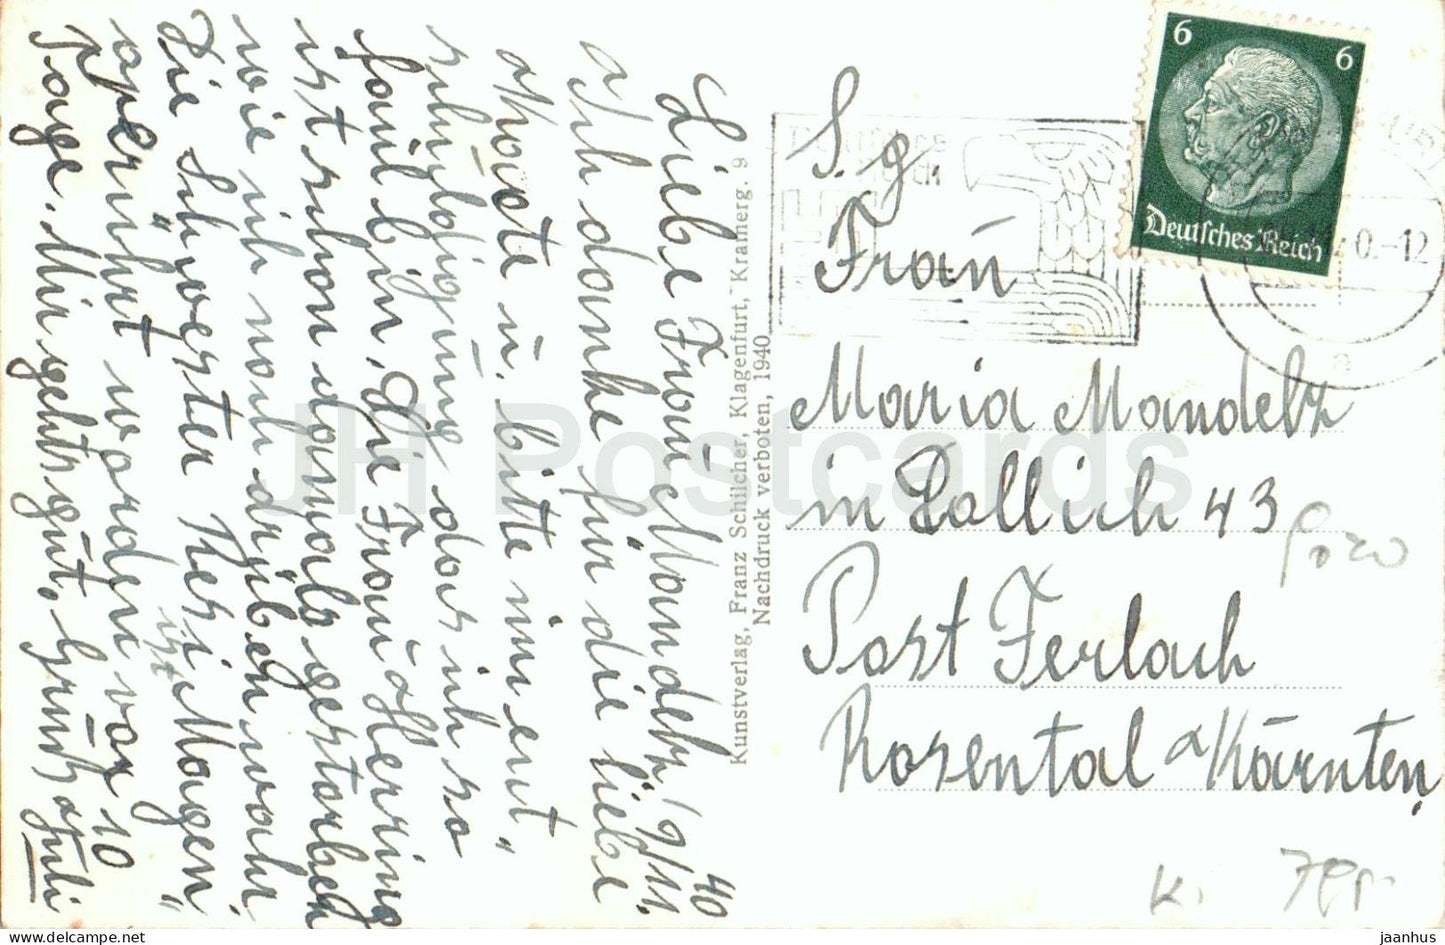 Liebe Frau Mandelz 9/11.
40
Ich danke für die liebe
Karte u. bitte um ent„
schuldigung das ich so
faul bin, die Frau Herring
ist schon damals gestorben
wie ich noch drüben war
Die Schwester Resi Magen„
ist
operührt worden vor 10
Tage. Mir gehts gut. Gruß Juli
Kunstverlag, Franz Schilcher, Klagenfurt, Kramerg. 9
Nachdruck verboten, 1940
S. g
Frau
Maria Mandelz
in Lallich 43
Post Ferlach
Rosental Kärnten,
6 6
Deutsches Reich
Deutsches
Reich
0.-12
a
K.
JH Postcards
delcampe.net
jaanhus